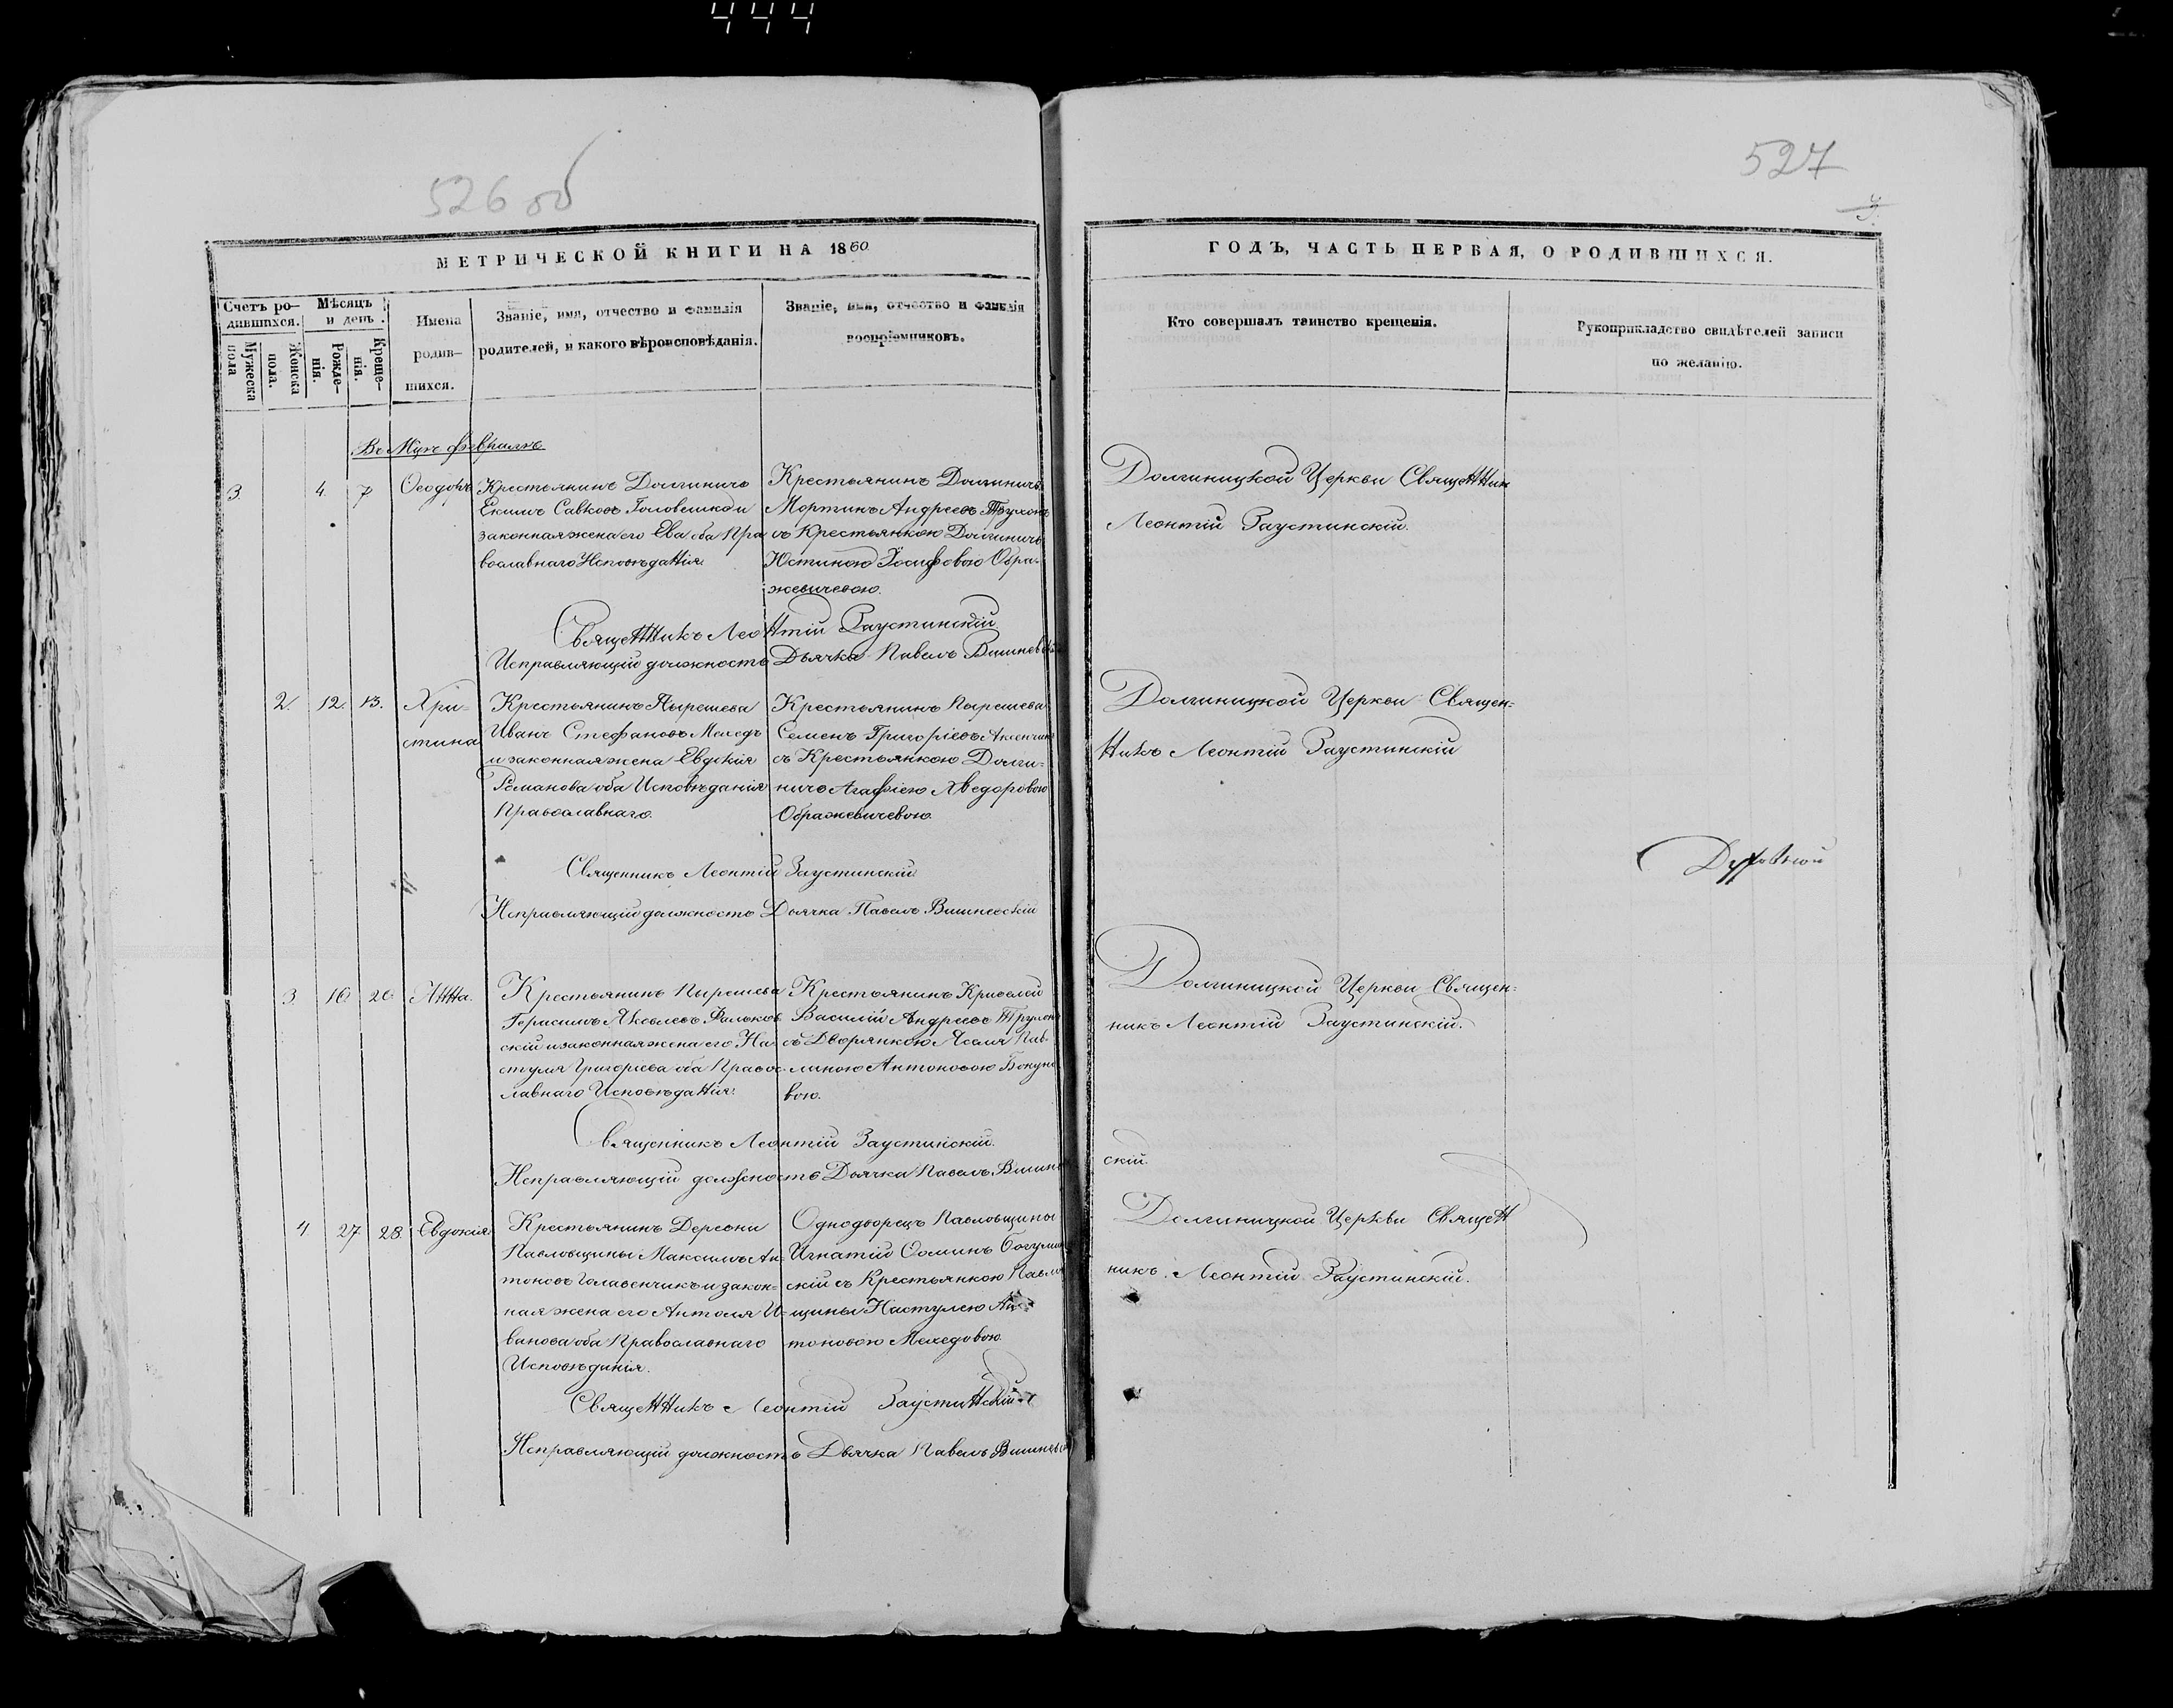 444
526 об
527
3.
МЕТРИЧЕСКОЙ КНИГИ НА 1860
ГОДЪ, ЧАСТЬ ПЕРВАЯ, О РОДИВШИХСЯ.
Счетъ ро-
дившихся.
Мужеска
пола
Женска
пола.
Мѣсяцъ
и день.
Рожде-
нія.
Креще-
нія.
Имена
родив-
шихся.
Званіе, имя, отчество и фамилія
родителей, и какого вѣроисповѣданія.
Званіе, имя, отчество и фамилія
воспріемниковъ.
Кто совершалъ таинство крещенія.
Рукоприкладство свидѣтелей записи
по желанію.
Въ Мцѣ февралѣ
3. 4. 7
Ѳеодоръ
Крестьянинъ Долгиничъ
Екимъ Савковъ Головешко и
законная жена его Ева оба Пра
вославнаго Исповѣданія
Крестьянинъ Долгиничъ
Мортинъ Андреевъ Трухон
съ Крестьянкою Долгиничъ
Юстиною Іосифовою Обра-
жевичевою.
Долгиницкой Церкви Священник
Леонтій Заустинскій.
Священникъ Леонтій Заустинскій
Исправляющій должность Дьячка Павелъ Вишневскі
2. 12. 13.
Хри-
стина
Крестьянинъ Пырешева
Иванъ Стефановъ Меледъ
и законная жена Евдокія
Романова оба Исповѣданія
Православнаго.
Крестьянинъ Пырешева
Семенъ Григоріевъ
съ Крестьянкою Долги-
ничъ Агафіею Хведоровою
Ображевичевою.
Долгиницкой Церкви Священ-
никъ Леонтій Заустинскій
Священникъ Леонтій Заустинскій
Исправляющій должность Дьячка Павелъ Вишневскій
3 16 26
Анна.
Крестьянинъ Пырешева
Герасимъ Яковлевъ Фальков
скій и законная жена его На-
стуля Григорьева оба Правос-
лавнаго Исповѣданія.
Крестьянинъ Кривоселой
Василій Андреевъ Трухон
съ Дворянкою Ясаля Пав-
линою Антоновою Бокуно
вою.
Долгиницкой Церкви Священ-
никъ Леонтій Заустинскій.
Священникъ Леонтій Заустинскій.
Исправляющій должность Дьячка Павелъ Вишнев
скій.
4 27 28.
Евдокія
Крестьянинъ Деревни
Павловщины Максимъ Ан-
тоновъ Голавенчикъ и закон-
ная жена его Антоля И-
ванова оба Православнаго
Исповѣданія.
Однодворецъ Павловщины
Игнатій Осминъ Богумин
скій съ Крестьянкою Павло
щины Настулею Ан-
тоновою Меледовою.
Долгиницкой Церкви Священ
никъ Леонтій Заустинскій.
Священникъ Леонтій Заустинскій
Исправляющій должность Дьячка Павелъ Вишневск